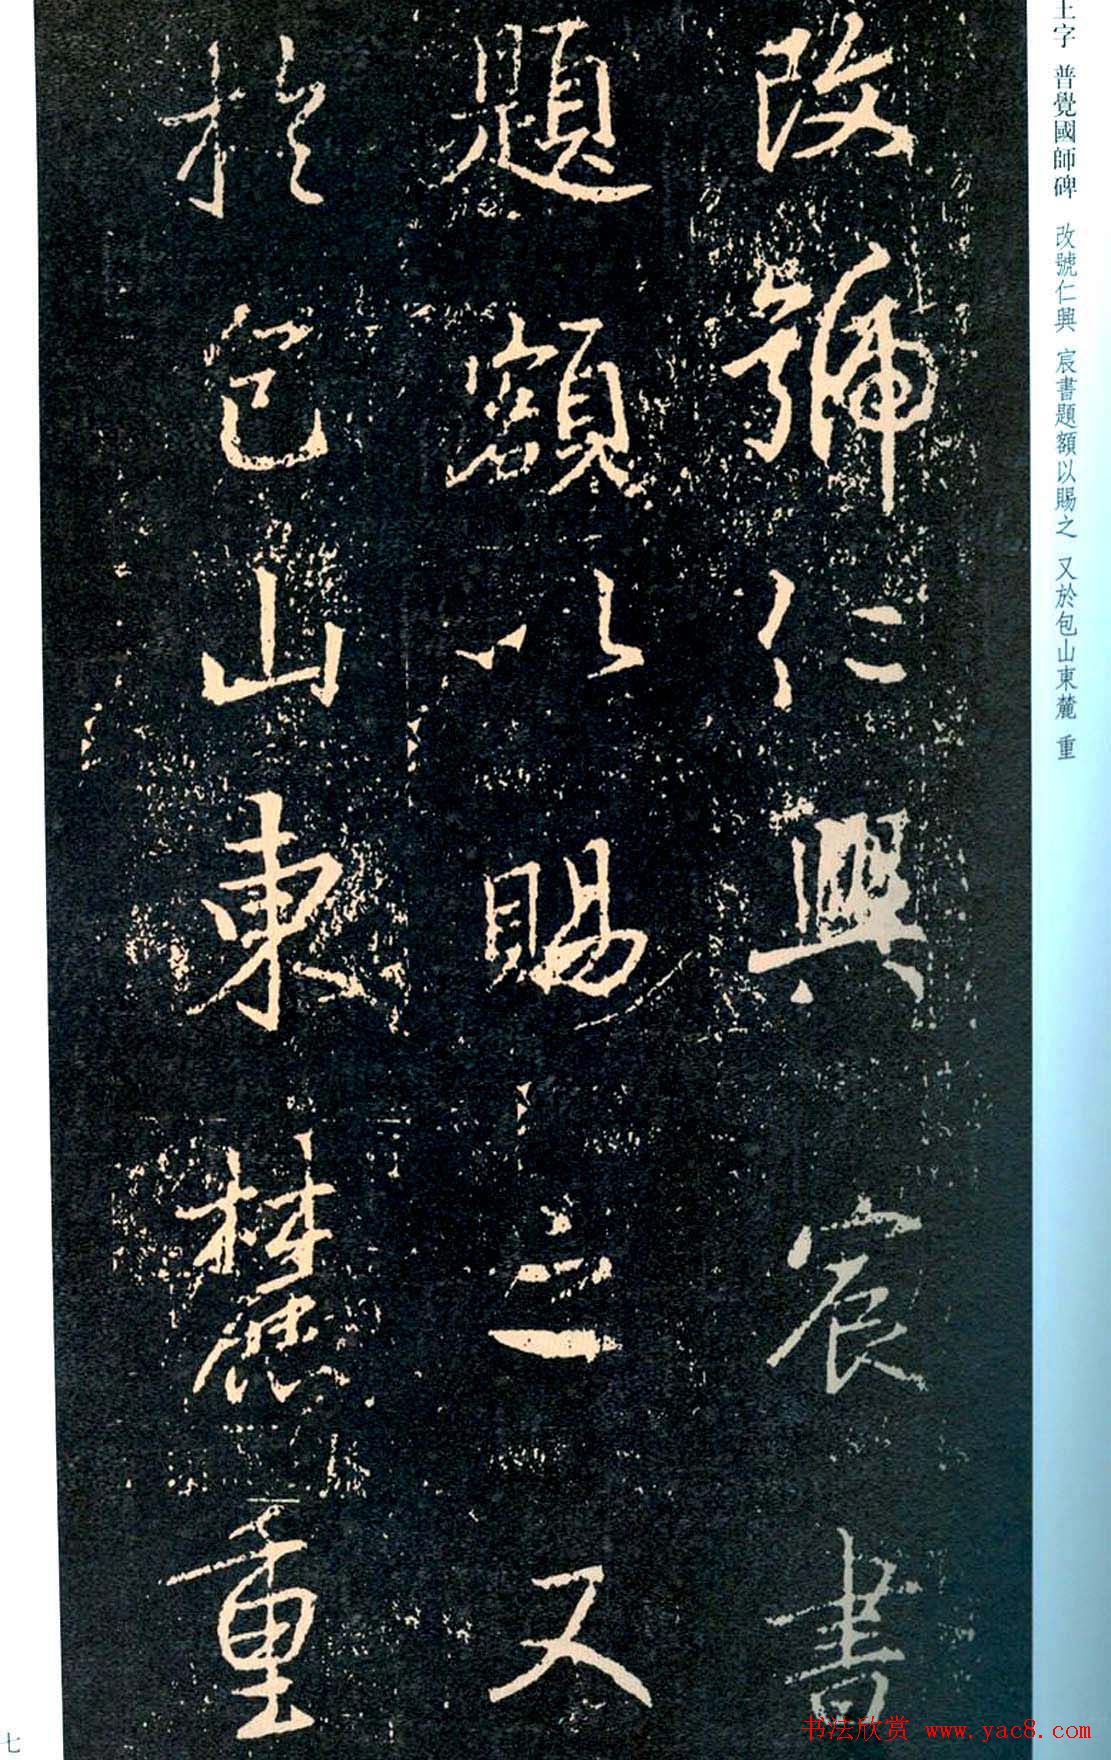 王字 普覺國師碑 改號仁興 宸書題額以賜之 又於包山東麓 重
改號仁興宸書
題額以賜之又
於包山東麓重
七
书法欣赏 www.yac8.com